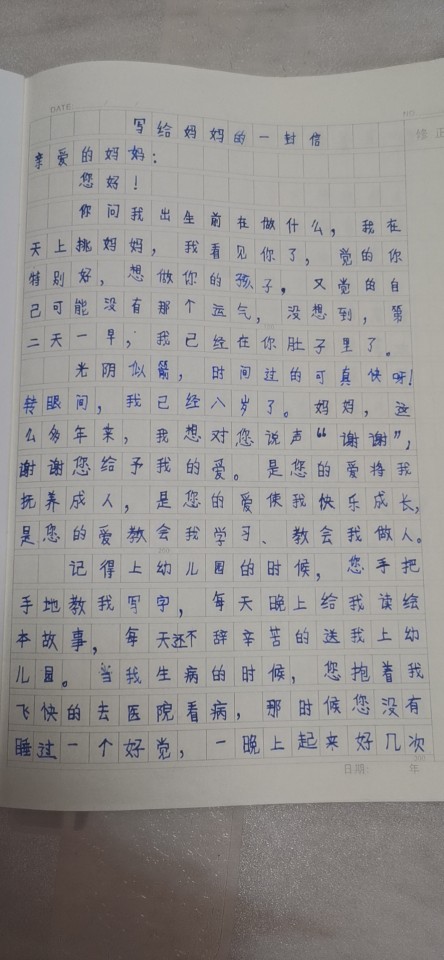 DATE
NO
修正
写给妈妈的一封信
亲爱的妈妈：
您好！
你问我出生前在做什么，我在
天上挑妈妈，我看见你了，觉的你
特别好，想做你的孩子，又觉的自
己可能没有那个运气，没想到，第
二天一早，我已经在你肚子里了。
光阴似箭，时间过的可真快呀！
转眼间，我已经八岁了。妈妈，这
么多年来，我想对您说声“谢谢”，
谢谢您给予我的爱。是您的爱将我
抚养成人，是您的爱使我快乐成长，
是您的爱教会我学习、教会我做人。
记得上幼儿园的时候，您手把
手地教我写字，每天晚上给我读绘
本故事，每天还不辞辛苦的送我上幼
儿园。当我生病的时候，您抱着我
飞快的去医院看病，那时候您没有
睡过一个好觉，一晚上起来好几次
日期： 年